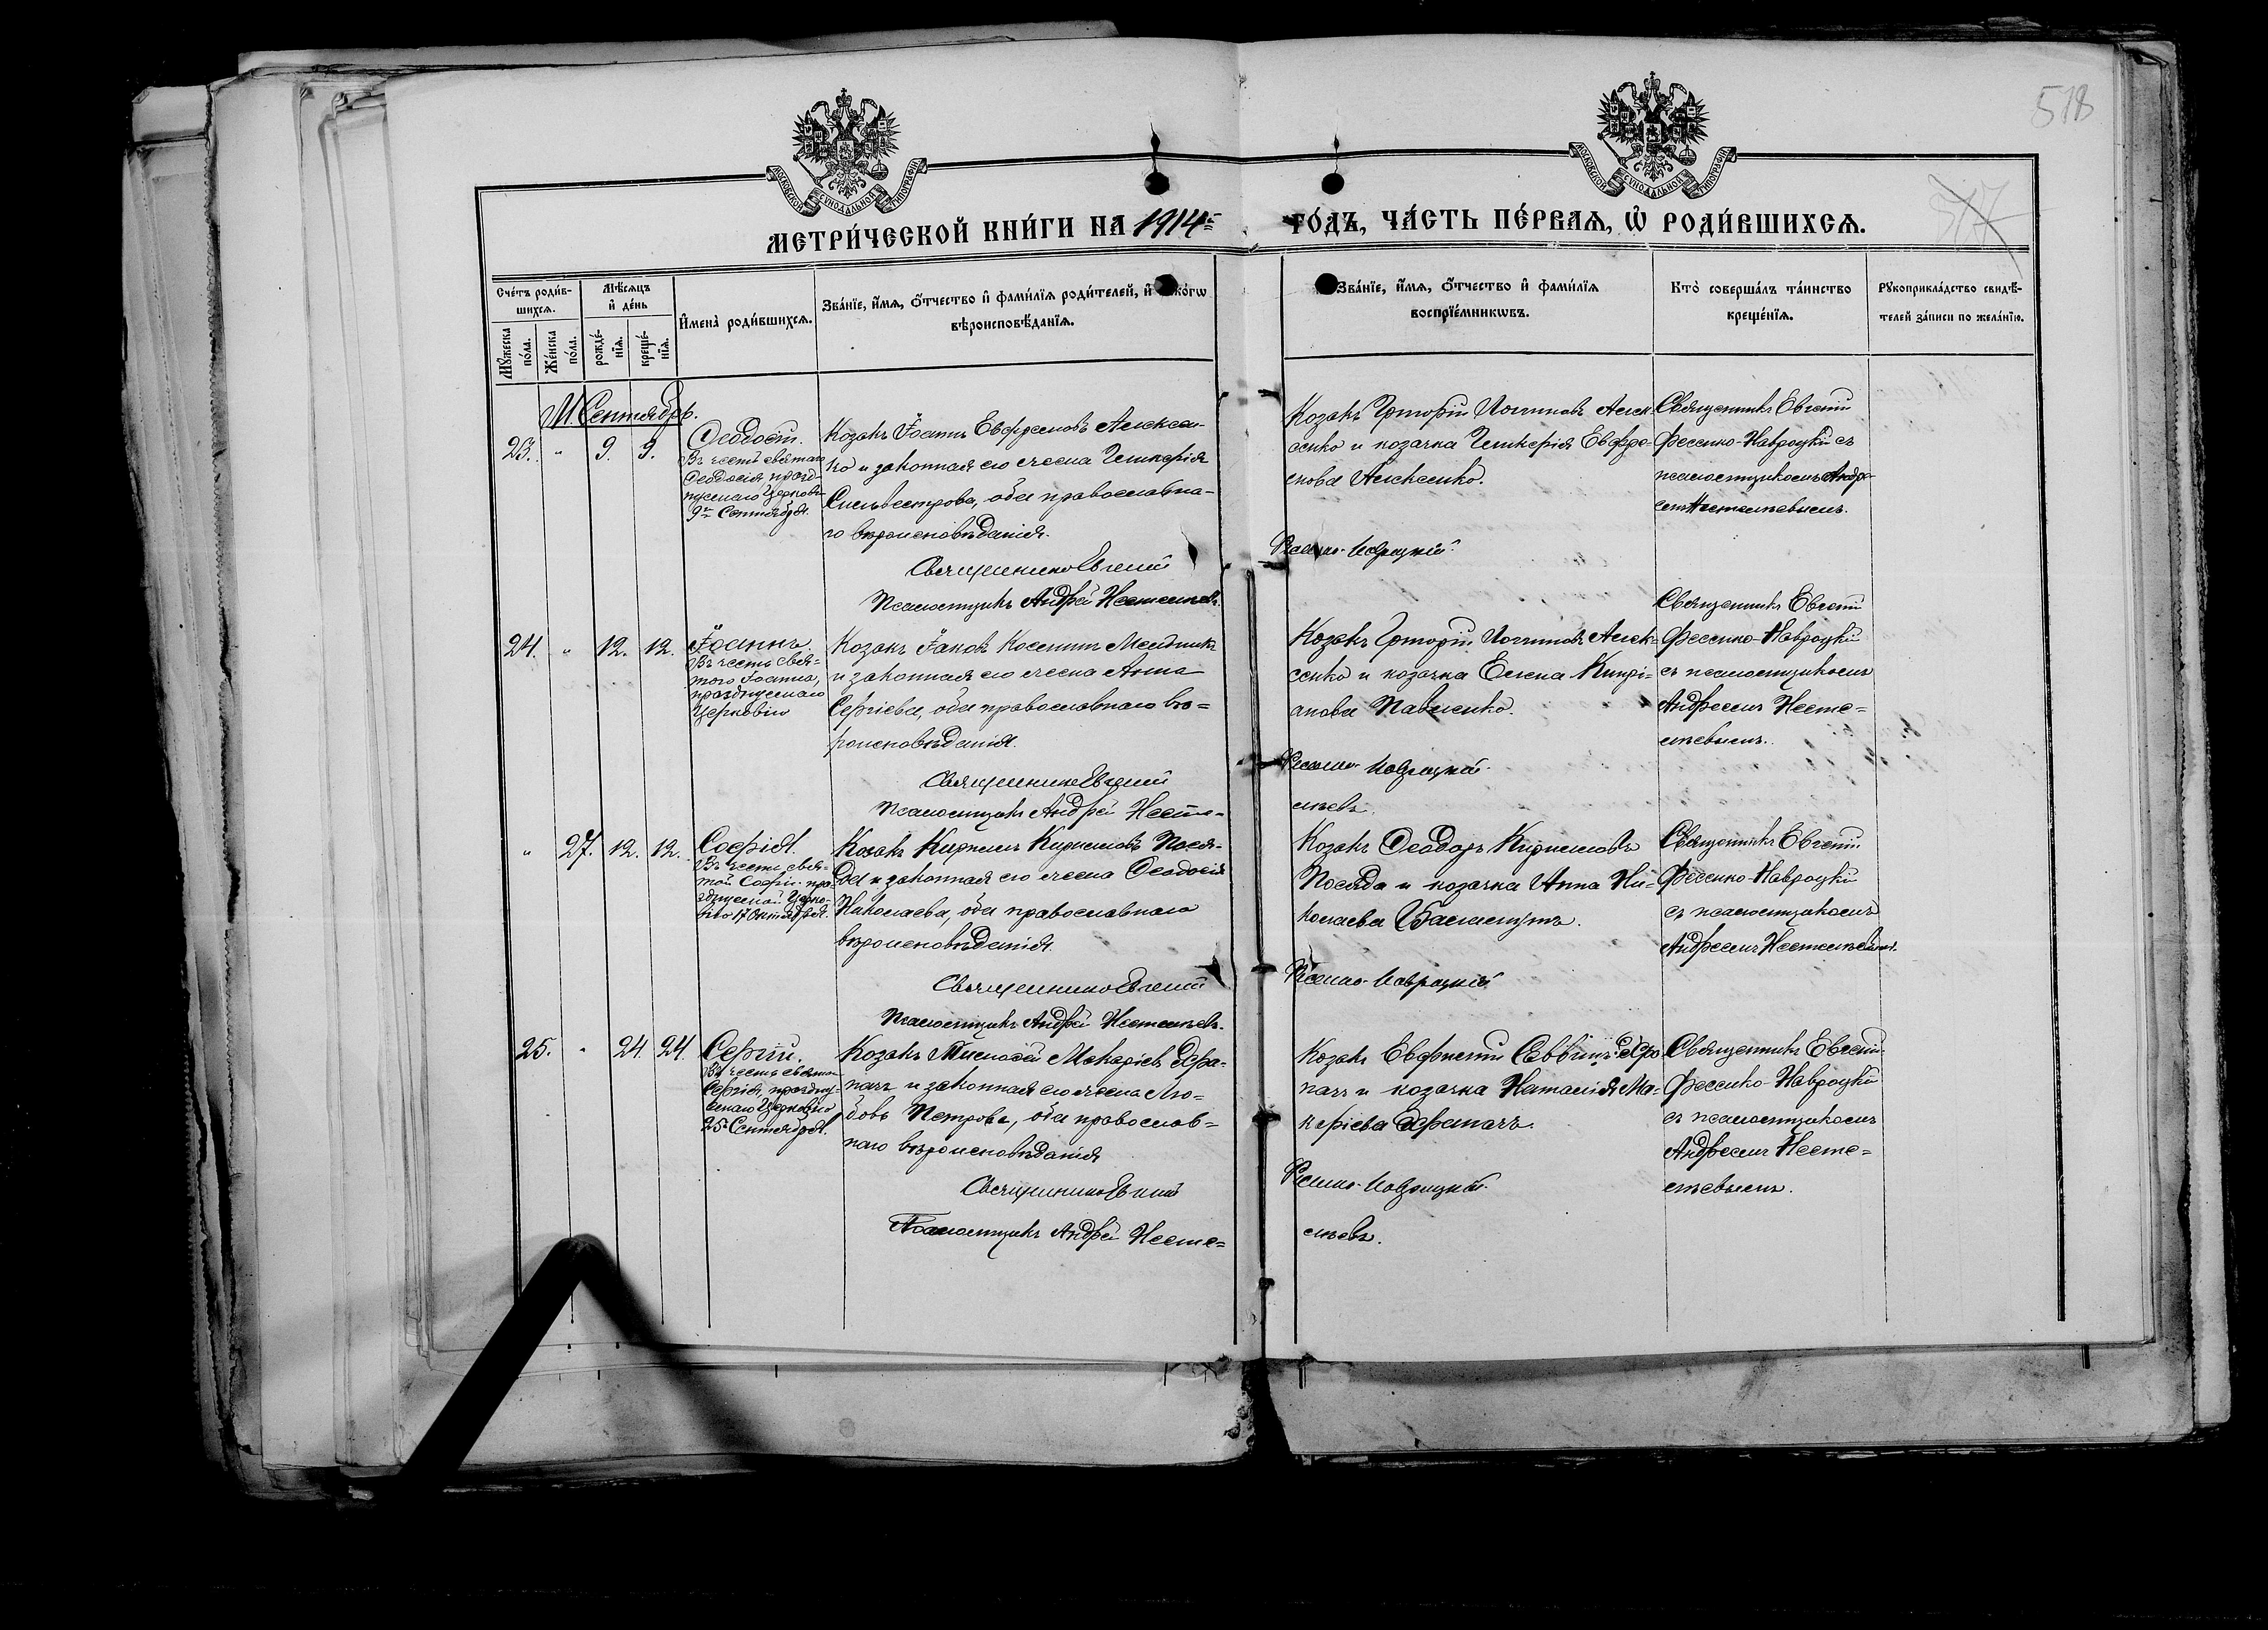 518
517
МОСКОВСКОЙ СѴНОДАЛЬНОЙ ТИПОГРАФІИ
МОСКОВСКОЙ СѴНОДАЛЬНОЙ ТИПОГРАФІИ
МЕТРИ́ЧЕСКОЙ КНИ́ГИ НА 1914й
ГО́ДЪ, ЧА́СТЬ ПЕ́РВАѦ, Ѽ РОДИ́ВШИХСѦ.
Сче́тъ роди́в-
шихсѧ.
Мꙋ́жеска по́ла.
Же́нска по́ла.
Мѣ́сѧцъ
и҆ де́нь
рожде́-
нїѧ.
креще́-
нїѧ.
И҆мена̀ роди́вшихсѧ.
Зва́нїе, и҆́мѧ, ѻ҆́тчество и҆ фами́лїѧ роди́телей, и҆ како́гѡ
вѣроисповѣ́данїѧ.
Зва́нїе, и҆́мѧ, ѻ҆́тчество и҆ фами́лїѧ
воспрїе́мникѡвъ.
Кто̀ соверша́лъ та́инство
креще́нїѧ.
Рꙋкоприкла́дство свидѣ́-
телей за́писи по жела́нїю.
М. Сентябрь.
23. " 9. 9.
Ѳеодосій.
Въ честь святаго
Ѳеодосія, празд-
нуемаго Церковію
9го Сентября.
Козакъ Іоаннъ Евфремовъ Алексеен-
ко и законная его жена Гликерія
Сильвестрова, оба православна-
го вѣроисповѣданія.
Священникъ Евгеній
Псаломщикъ Андрей Нестелѣевъ.
Козакъ Григорій Логгиновъ Алек-
сенко и козачка Гликерія Евфре-
мова Алексенко.
Фесенко-Навроцкій.
Священникъ Евгеній
Фесенко-Навроцкій съ
псаломщикомъ Андре-
емъ
24. " 12. 12.
Іоаннъ.
Въ честь свя-
того Іоанна,
празднуемаго
Церковію
Козакъ Іаковъ
и законная его жена Анна
Сергіева, оба православнаго вѣ-
роисповѣданія.
Священникъ Евгеній
Псаломщикъ Андрей
Козакъ Григорій Логгиновъ Алек-
сенко и козачка Елена Кипрі-
анова Павленко.
Фесенко-Навроцкій.
Священникъ Евгеній
Фесенко-Навроцкій
съ псаломщикомъ
Андреемъ
" 27. 12. 12.
Софія.
Въ честь свя-
той Софіи, пра-
зднуемой Церко-
вію 17 Сентября.
Козакъ Кириллъ Кирилловъ Пося-
да и законная его жена Ѳеодосія
Николаева, оба православнаго
вѣроисповѣданія.
Священникъ Евгеній
Псаломщикъ Андрей
Козакъ Ѳеодоръ Кирилловъ
Посяда и козачка Анна Ни-
колаева
Фесенко-Навроцкій
Священникъ Евгеній
Фесенко-Навроцкій
съ псаломщикомъ
Андреемъ
25. " 24. 24.
Сергій.
Въ честь святаго
Сергія, праздну-
емаго Церковію
25 Сентября.
Козакъ Тимоѳей Макаріевъ Дра-
пачъ и законная его жена Лю-
бовь Петрова, оба православ-
наго вѣроисповѣданія
Священникъ Евгеній
Псаломщикъ Андрей
Козакъ Евфимій Саввинъ Дра
пачъ и козачка Наталія Ма-
каріева Драпачъ.
Фесенко-Навроцкій.
Священникъ Евгеній
Фесенко-Навроцкій
съ псаломщикомъ
Андреемъ